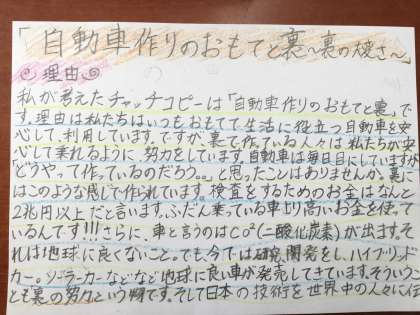 「自動車作りのおもてと裏〜裏の大変さ〜」
理由
私が考えたチャッチコピーは「自動車作りのおもてと裏。」で
す。理由は私たちはいつもおもてで生活に役立つ自動車を安
心して、利用しています。ですが、裏で作っている人々は私たちが安
心して乗れるように、努力をしています。自動車は毎日目にしていますが
「どうやって作っているのだろう。。」と思ったことはありませんか。裏に
はこのような感じで作られています。検査をするためのお金はなんと
2兆円以上だと言います。ふだん乗っている車より高いお金を使って
いるんです!!!さらに、車と言うのはCO²(二酸化炭素)が出ます。そ
れは地球に良くないこと。でも、今では研究、開発をし、ハイブリッド
カー。ソーラーカーなどなど地球に良い車が発売してきています。そういうこ
とも裏の努力という物です。そして日本の技術を世界中の人々に伝